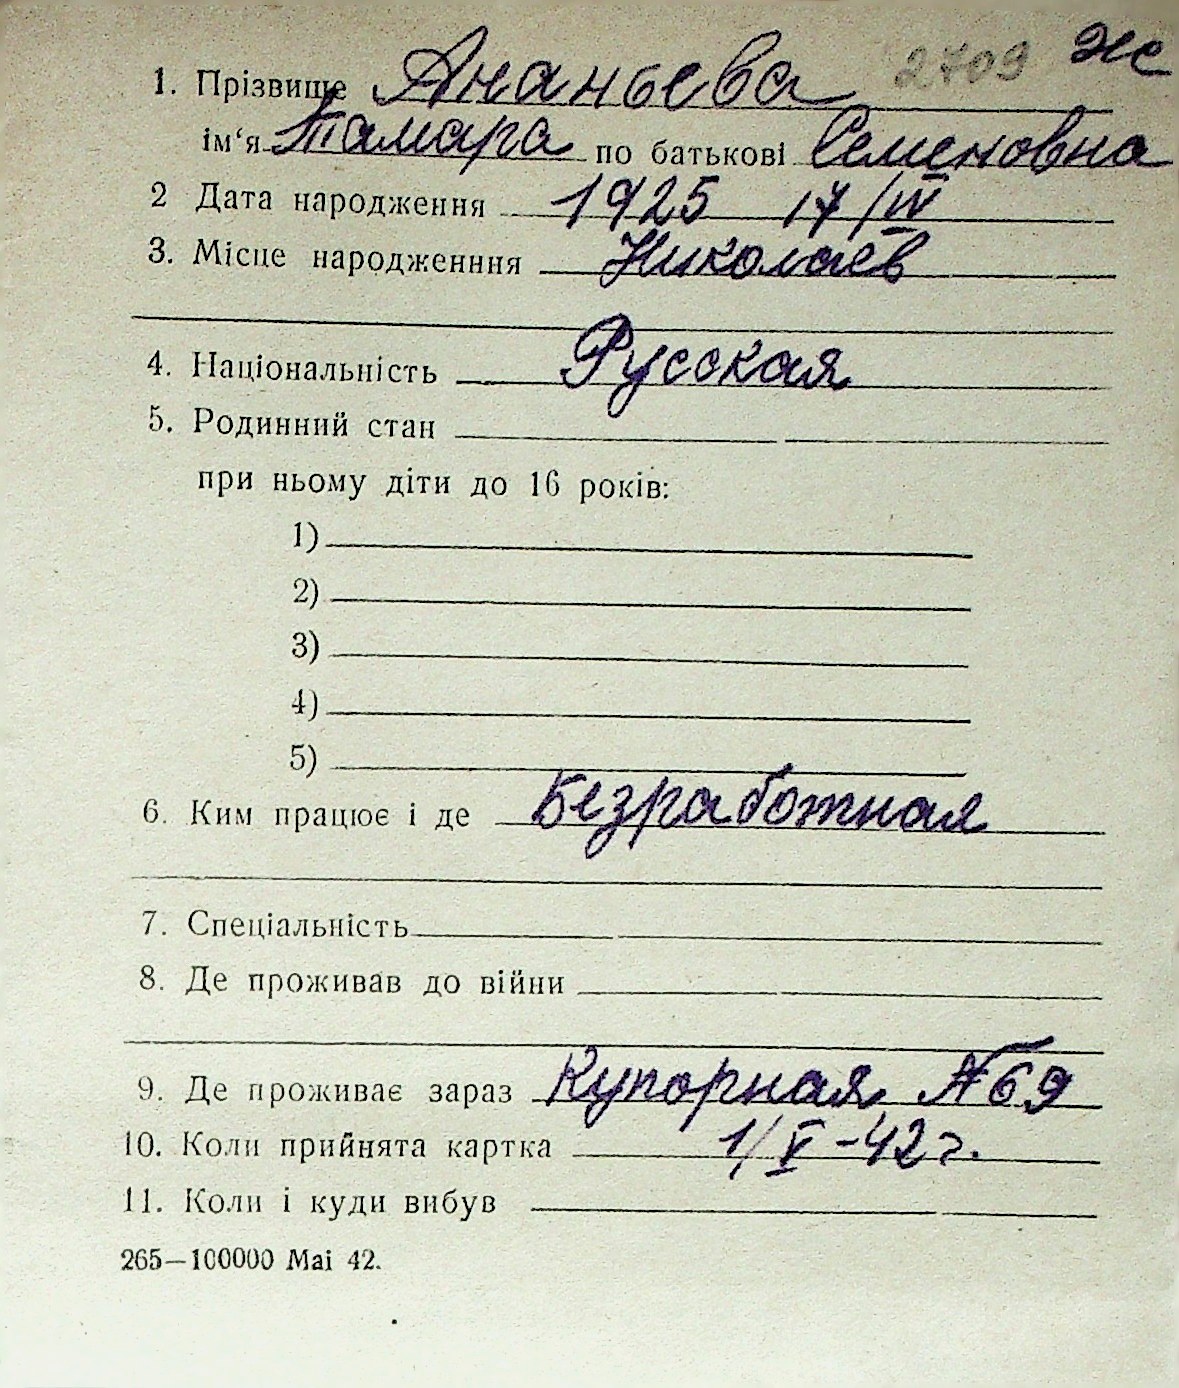 1. Прізвище Ананьева 2709 ж
ім'я Тамара по батькові Семеновна
2 Дата народження 1925 17/IV
3. Місце народженння Николаев
4. Національність Русская
5. Родинний стан
при ньому діти до 16 років:
1)
2)
3)
4)
5)
6. Ким працює і де Безработная
7. Спеціальність
8. Де проживав до війни
9. Де проживає зараз Купорная №69
10. Коли прийнята картка 1/V-42 г.
11. Коли і куди вибув
265—100000 Mai 42.